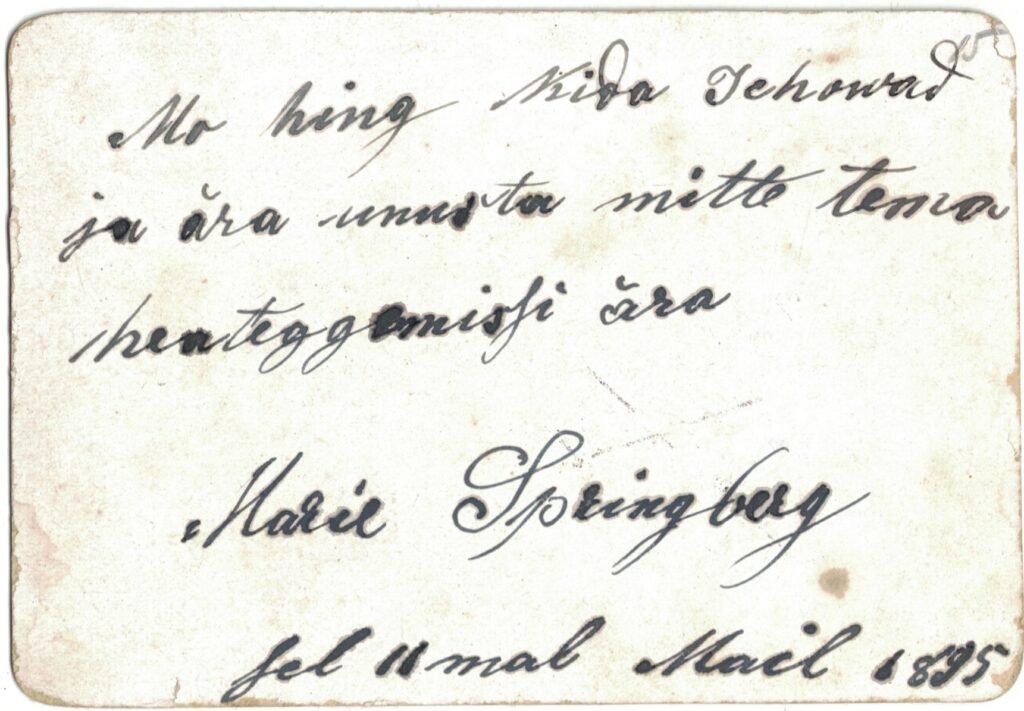 Mo hing kida Jehowad
ja ära unusta mitte tema
heateggemissi ära
Marie Springberg
sel 11 mal Mail 1895